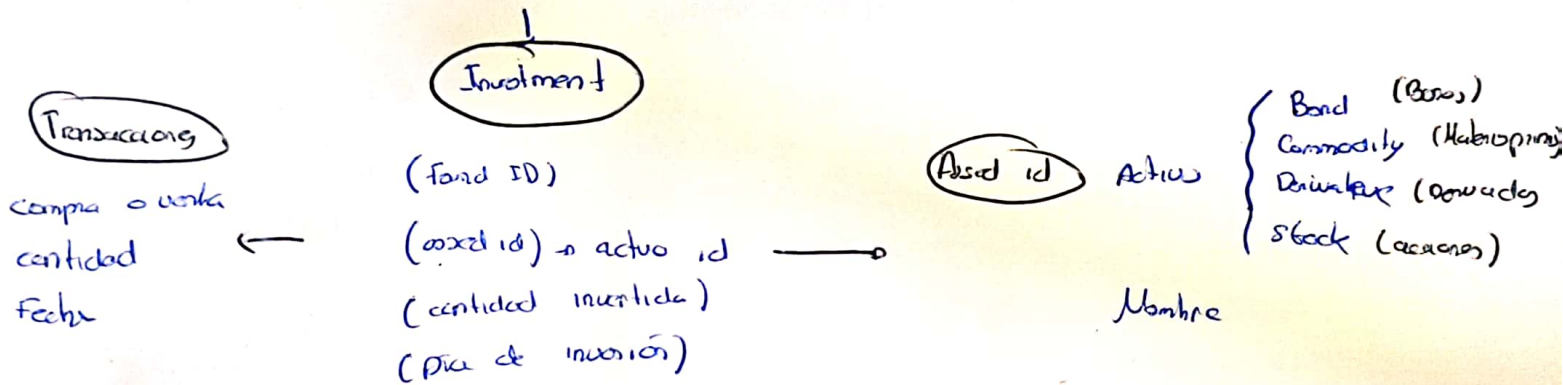 Investment
Transacciones
compra o venta
cantidad
Fecha
(fond ID)
(asset id) → activo id
(cantidad invertida)
(Dia de inversión)
Asset id
Activo
Bond (Bonos)
Commodity (Materoprim
Derivative (Derivados
Stock (acciones)
Nombre